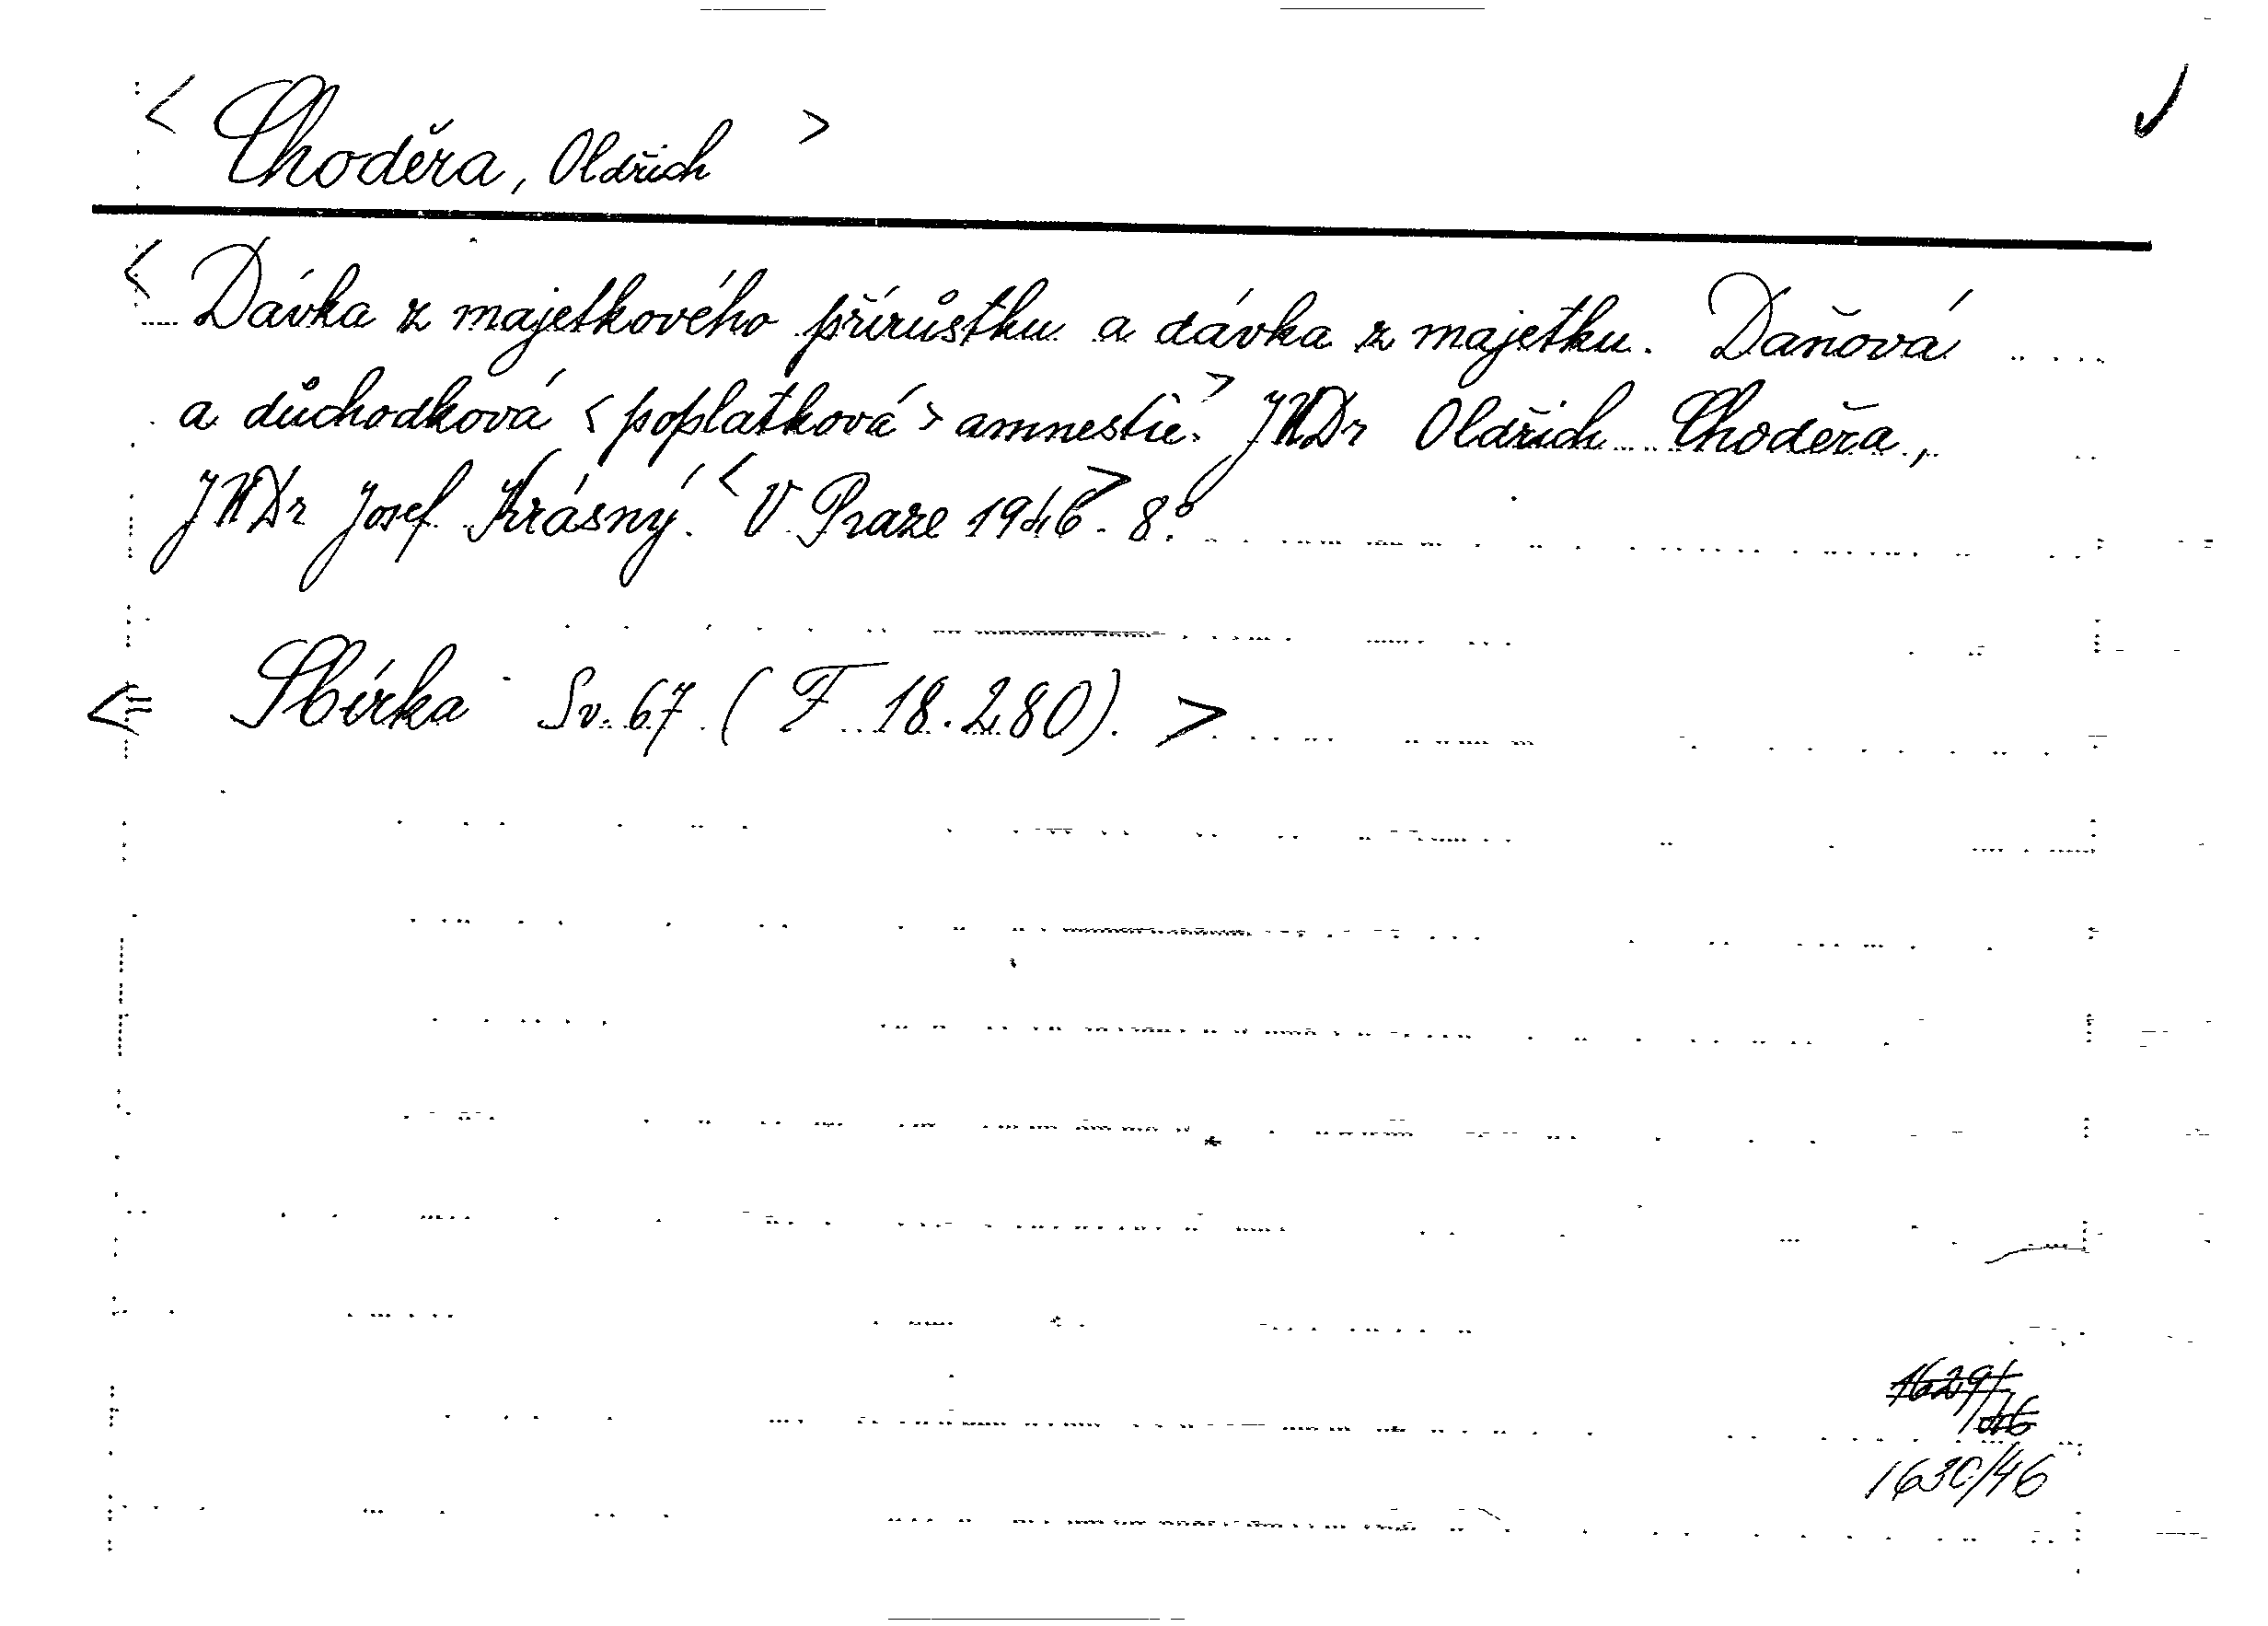 < Choděra, Oldřich >
< Dávka z majetkového přírůstku a dávka z majetku. Daňová
a důchodková < poplatková > amnestie. > JUDr Oldřich Choděra,
JUDr Josef Krásný. < V Praze 1946. > 8°.
<= Sbírka Sv. 67 (F 18.280). >
1629/46
1630/46